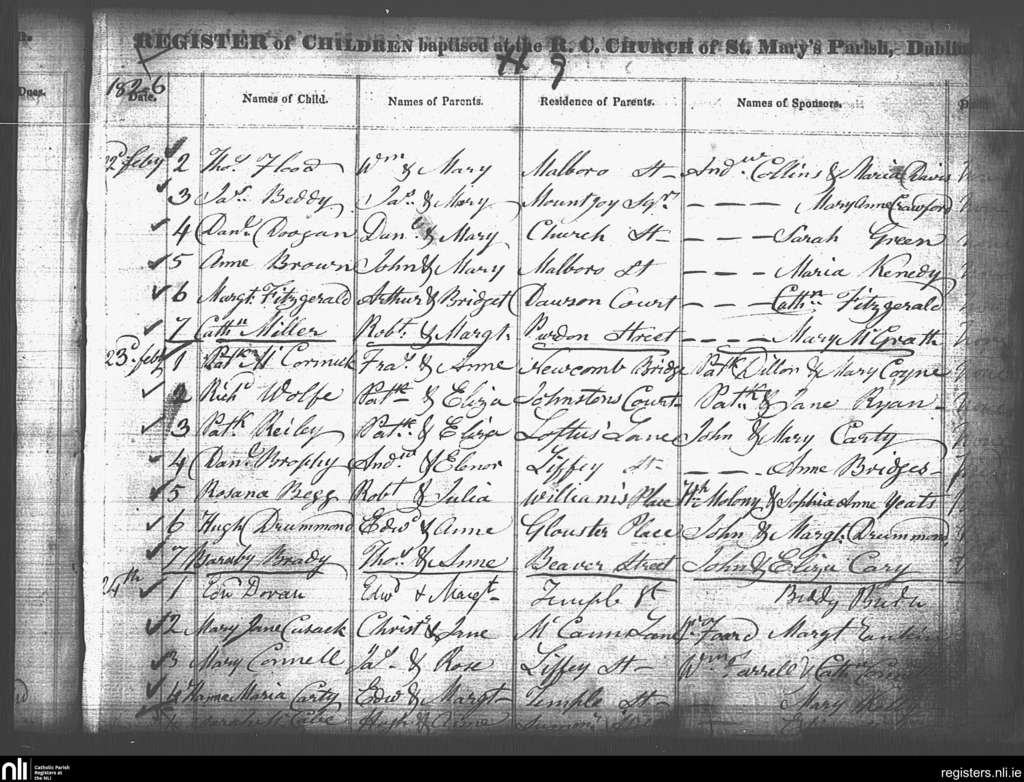 REGISTER of CHILDREN baptised at the R. C. CHURCH of St. Mary's Parish, Dublin
1826
Dues. Date. Names of Child. Names of Parents. Residence of Parents. Names of Sponsors.
22d feby 2 Thos. Flood Wm & Mary Malboro St - Andw. Collins & Maria Davis
3 Jas. Beddy Jas. & Mary Mountjoy Sqr. - - - - Mary Anne Crawford
4 Danl. Doogan Danl. & Mary Church St - - - - Sarah Green
5 Anne Brown John & Mary Malboro St - - - Maria Kenedy
6 Margt. Fitzgerald Arthur & Bridget Dawson Court - - - Cathn Fitzgerald
7 Cathn Miller Robt. & Margt. Purdon Street - - - - Mary McGrath
23d. feby 1 Patk McCormick Fras. & Anne Newcomb Bridge Patk Dillon & Mary Coyne
2 Richd Wolfe Patk & Eliza Johnstons Court Patk & Jane Ryan -
3 Patk. Reiley Patk. & Eliza Loftus' Lane John & Mary Carty
4 Danl. Brophy Andw & Elenor Liffey St - - - - Anne Bridges -
5 Rosana Begg Robt & Julia William's Place Molony & Sophia Anne Yeats
6 Hugh Drummond Edwd & Anne Glouster Place John & Margt. Drummond
7 Barnby Brady Thos. & Anne Beaver Street John & Eliza Cary
24th 1 Edwd Doran Edwd & Margt Temple St Biddy
2 Mary Jane Cusack Christr & Jane McCanns Lane Foard Margt
3 Mary Connell Jas. & Rose Liffey St - Wm Farrell & Cathn
4 Maria Carty Edwd & Margt Temple St - Mary Kelly
Sarah McCabe Hugh &
nli Catholic Parish
Registers at
the NLI
registers.nli.ie